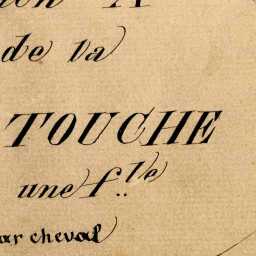 de la
TOUCHE
une f.^lle
ar cheval